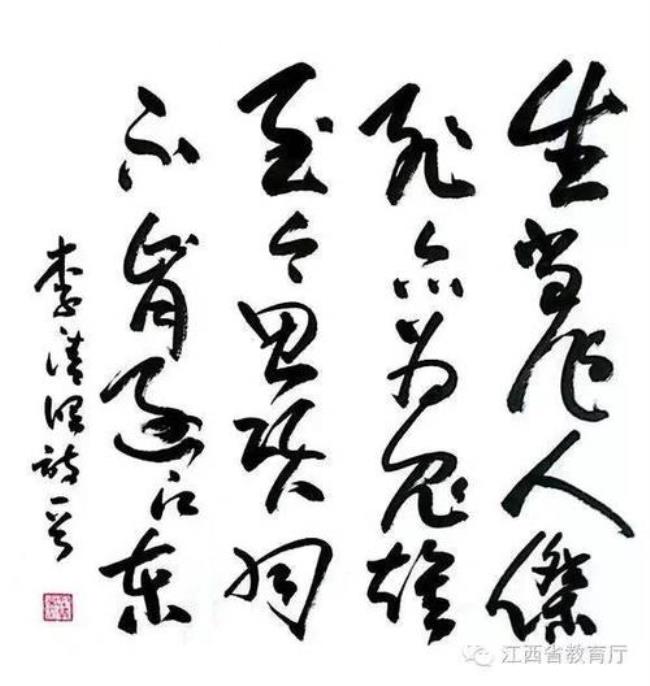 生当作人傑
死亦为鬼雄
至今思项羽
不肯过江东
李清照诗一首
江西省教育厅